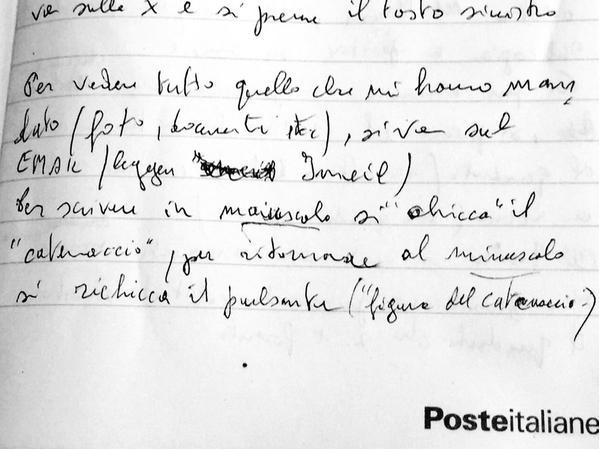 va sulla X e si preme il tasto sinistro
Per vedere tutto quello che mi hanno man
dato (foto, documenti etc), si va sul
EMAIL (leggere Imeil)
Per scrivere in maiuscolo si "chicca" il
"catenaccio", per ritornare al minuscolo
si richicca il pulsante ("figura del catenaccio")
Posteitaliane